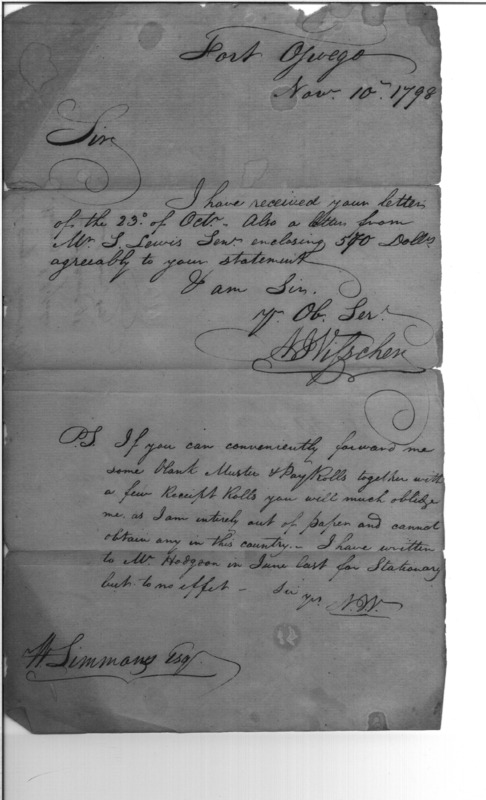 Fort Oswego
Nov. 10th 1798
Sir
I have received your letter
of the 23d of Octr. Also a letter from
Mr. S. Lewis Senr enclosing 570 Dollrs
agreeably to your statement
I am Sir.
Yr. Ob. Serv.
P.S. If you can conveniently forward me
some blank Muster & Pay Rolls together with
a few Receipt Rolls you will much oblidge
me, as I am intirely out of paper and cannot
obtain any in this country. – I have written
to Mr. Hodgdon in June last for Stationary
but to no effet – Sir yrs N.W.
W Simmons Esqr.